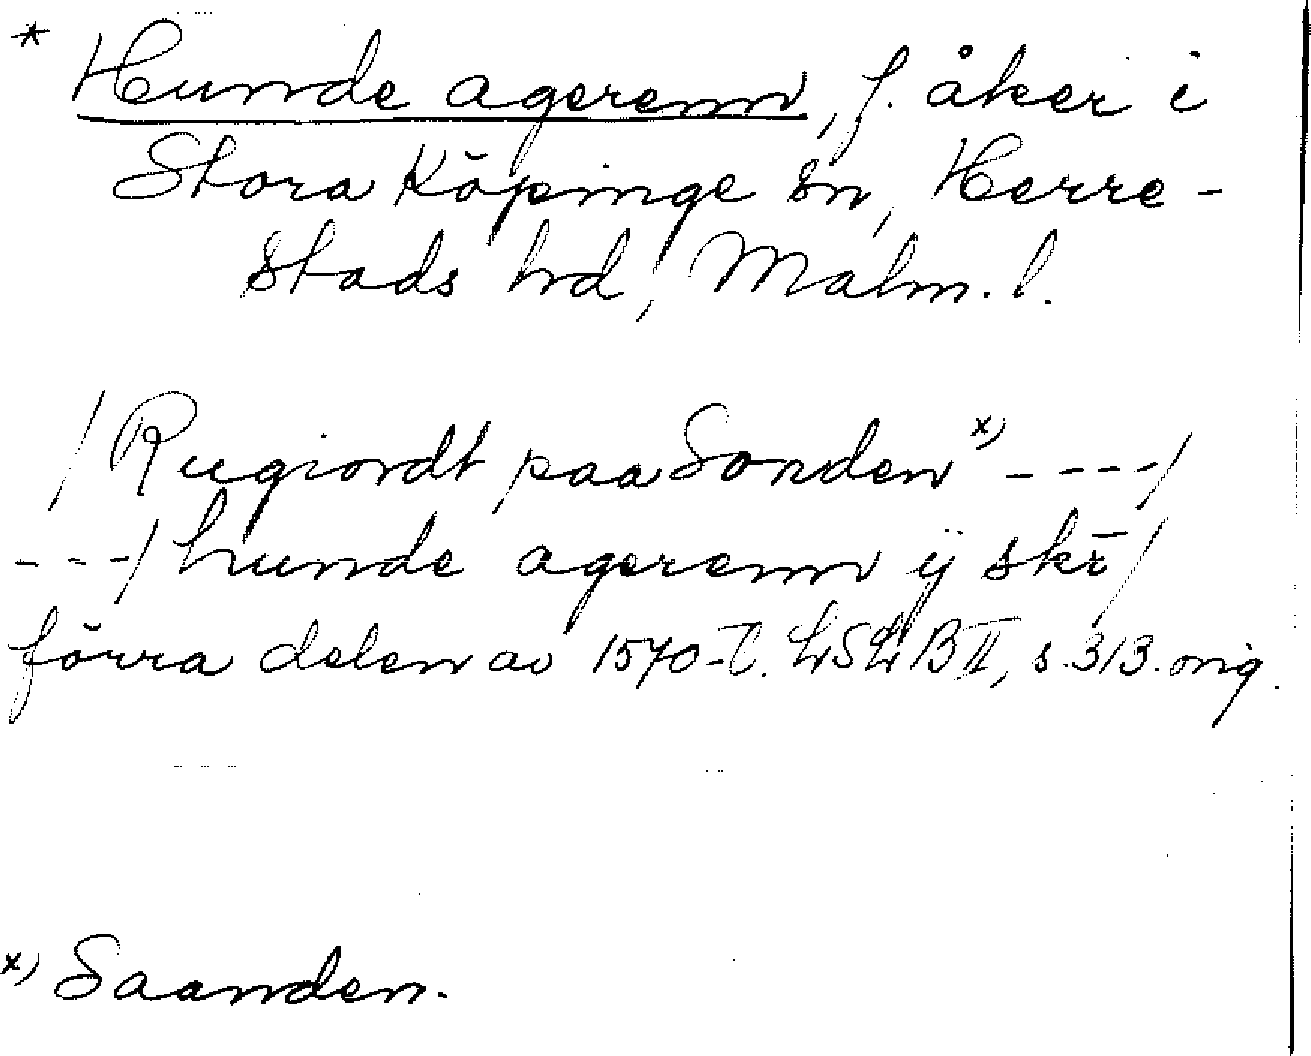 * Hunde agerenn, f. åker i
Stora Köpinge sn, Herre-
stads hd, Malm. l.
/Rugiordt paa Sonden x) ----/
---/ hunde agerenn ij skr̄/
förra delen av 1570-t. LSLB II, s. 313. orig.
x) Saanden.